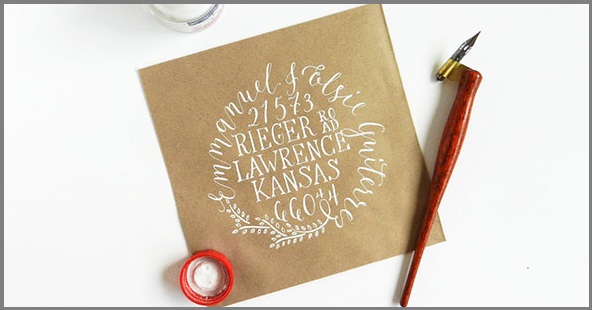 Emmanuel & Elsie
21573
RIEGER ROAD
LAWRENCE
KANSAS
66044